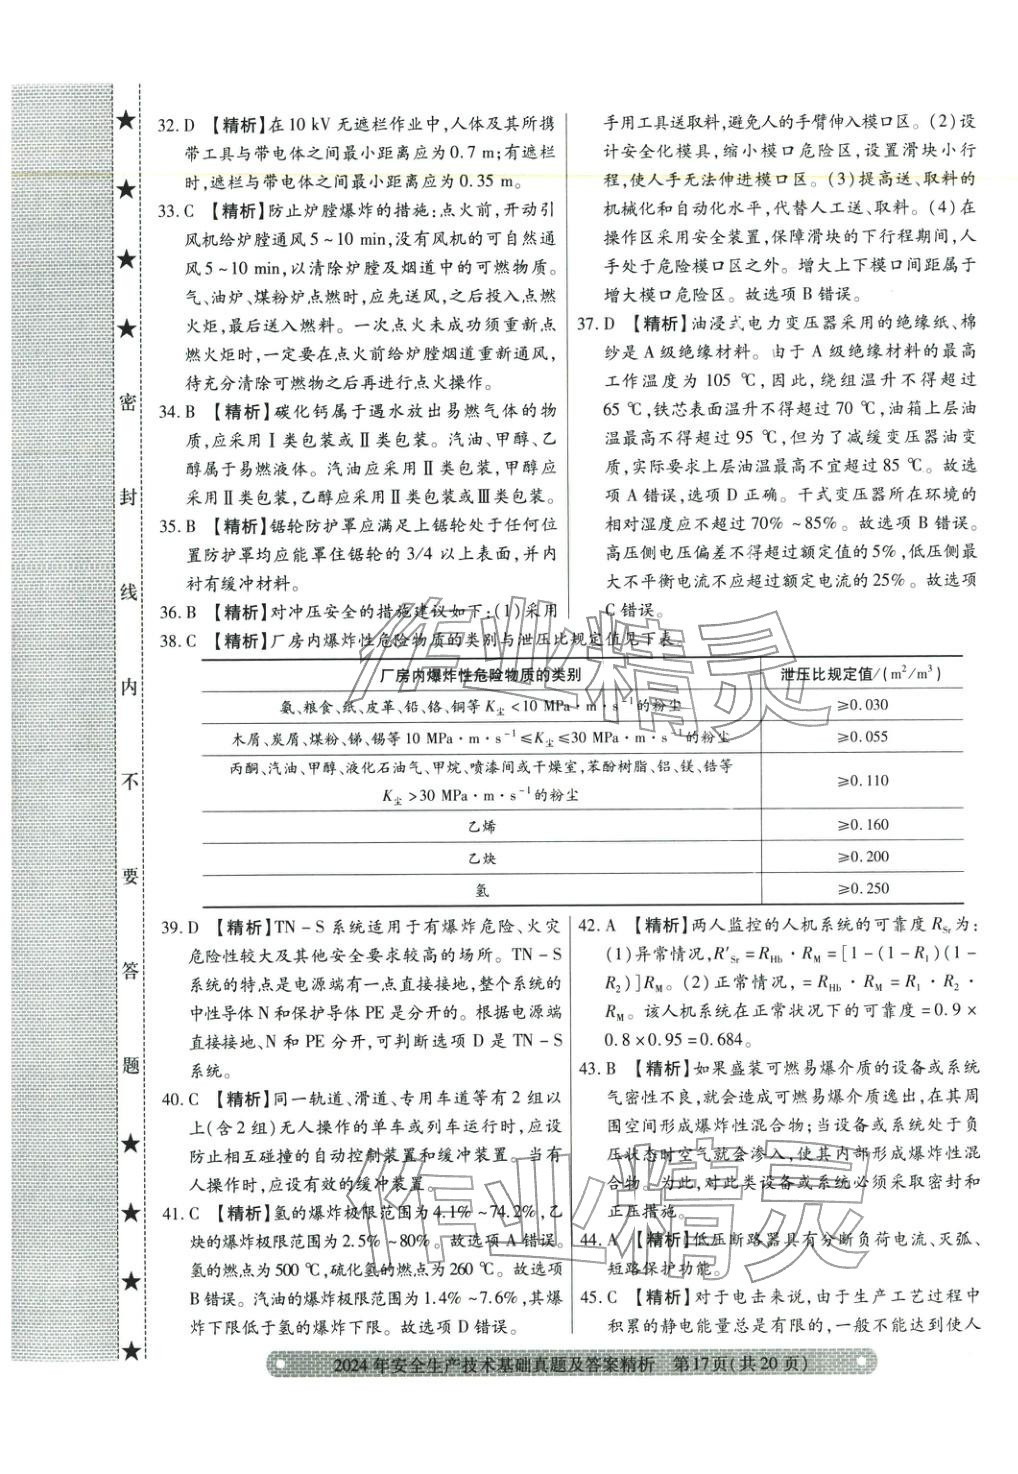 32. D 【精析】在 10 kV 无遮栏作业中,人体及其所携
带工具与带电体之间最小距离应为 0.7 m;有遮栏
时,遮栏与带电体之间最小距离应为 0.35 m。
33. C 【精析】防止炉膛爆炸的措施:点火前,开动引
风机给炉膛通风 5~10 min,没有风机的可自然通
风 5~10 min,以清除炉膛及烟道中的可燃物质。
气、油炉、煤粉炉点燃时,应先送风,之后投入点燃
火炬,最后送入燃料。一次点火未成功须重新点
燃火炬时,一定要在点火前给炉膛烟道重新通风,
待充分清除可燃物之后再进行点火操作。
34. B 【精析】碳化钙属于遇水放出易燃气体的物
质,应采用Ⅰ类包装或Ⅱ类包装。汽油、甲醇、乙
醇属于易燃液体。汽油应采用Ⅱ类包装,甲醇应
采用Ⅱ类包装,乙醇应采用Ⅱ类包装或Ⅲ类包装。
35. B 【精析】锯轮防护罩应满足上锯轮处于任何位
置防护罩均应能罩住锯轮的 3/4 以上表面,并内
衬有缓冲材料。
36. B 【精析】对冲压安全的措施建议如下:(1)采用
手用工具送取料,避免人的手臂伸入模口区。(2)设
计安全化模具,缩小模口危险区,设置滑块小行
程,使人手无法伸进模口区。(3)提高送、取料的
机械化和自动化水平,代替人工送、取料。(4)在
操作区采用安全装置,保障滑块的下行程期间,人
手处于危险模口区之外。增大上下模口间距属于
增大模口危险区。故选项 B 错误。
37. D 【精析】油浸式电力变压器采用的绝缘纸、棉
纱是 A 级绝缘材料。由于 A 级绝缘材料的最高
工作温度为 105 ℃,因此,绕组温升不得超过
65 ℃,铁芯表面温升不得超过 70 ℃,油箱上层油
温最高不得超过 95 ℃,但为了减缓变压器油变
质,实际要求上层油温最高不宜超过 85 ℃。故选
项 A 错误,选项 D 正确。干式变压器所在环境的
相对湿度应不超过 70%~85%。故选项 B 错误。
高压侧电压偏差不得超过额定值的 5%,低压侧最
大不平衡电流不应超过额定电流的 25%。故选项
C 错误。
38. C 【精析】厂房内爆炸性危险物质的类别与泄压比规定值见下表
厂房内爆炸性危险物质的类别 泄压比规定值/(m²/m³)
氨、粮食、纸、皮革、铅、铬、铜等 K尘<10 MPa·m·s⁻¹的粉尘 ≥0.030
木屑、炭屑、煤粉、锑、锡等 10 MPa·m·s⁻¹≤K尘≤30 MPa·m·s⁻¹的粉尘 ≥0.055
丙酮、汽油、甲醇、液化石油气、甲烷、喷漆间或干燥室,苯酚树脂、铝、镁、锆等
K尘>30 MPa·m·s⁻¹的粉尘 ≥0.110
乙烯 ≥0.160
乙炔 ≥0.200
氢 ≥0.250
39. D 【精析】TN-S 系统适用于有爆炸危险、火灾
危险性较大及其他安全要求较高的场所。TN-S
系统的特点是电源端有一点直接接地,整个系统的
中性导体 N 和保护导体 PE 是分开的。根据电源端
直接接地、N 和 PE 分开,可判断选项 D 是 TN-S
系统。
40. C 【精析】同一轨道、滑道、专用车道等有 2 组以
上(含 2 组)无人操作的单车或列车运行时,应设
防止相互碰撞的自动控制装置和缓冲装置。当有
人操作时,应设有效的缓冲装置。
41. C 【精析】氢的爆炸极限范围为 4.1%~74.2%,乙
炔的爆炸极限范围为 2.5%~80%。故选项 A 错误。
氢的燃点为 500 ℃,硫化氢的燃点为 260 ℃。故选项
B 错误。汽油的爆炸极限范围为 1.4%~7.6%,其爆
炸下限低于氢的爆炸下限。故选项 D 错误。
42. A 【精析】两人监控的人机系统的可靠度 RSr 为:
(1)异常情况,R′Sr=RHb·RM=[1-(1-R1)(1-
R2)]RM。(2)正常情况,=RHb·RM=R1·R2·
RM。该人机系统在正常状况下的可靠度=0.9×
0.8×0.95=0.684。
43. B 【精析】如果盛装可燃易爆介质的设备或系统
气密性不良,就会造成可燃易爆介质逸出,在其周
围空间形成爆炸性混合物;当设备或系统处于负
压状态时空气就会渗入,使其内部形成爆炸性混
合物。为此,对此类设备或系统必须采取密封和
正压措施。
44. A 【精析】低压断路器具有分断负荷电流、灭弧、
短路保护功能。
45. C 【精析】对于电击来说,由于生产工艺过程中
积累的静电能量总是有限的,一般不能达到使人
2024 年安全生产技术基础真题及答案精析 第 17 页(共 20 页)
密
封
线
内
不
要
答
题
作业精灵
作业精灵